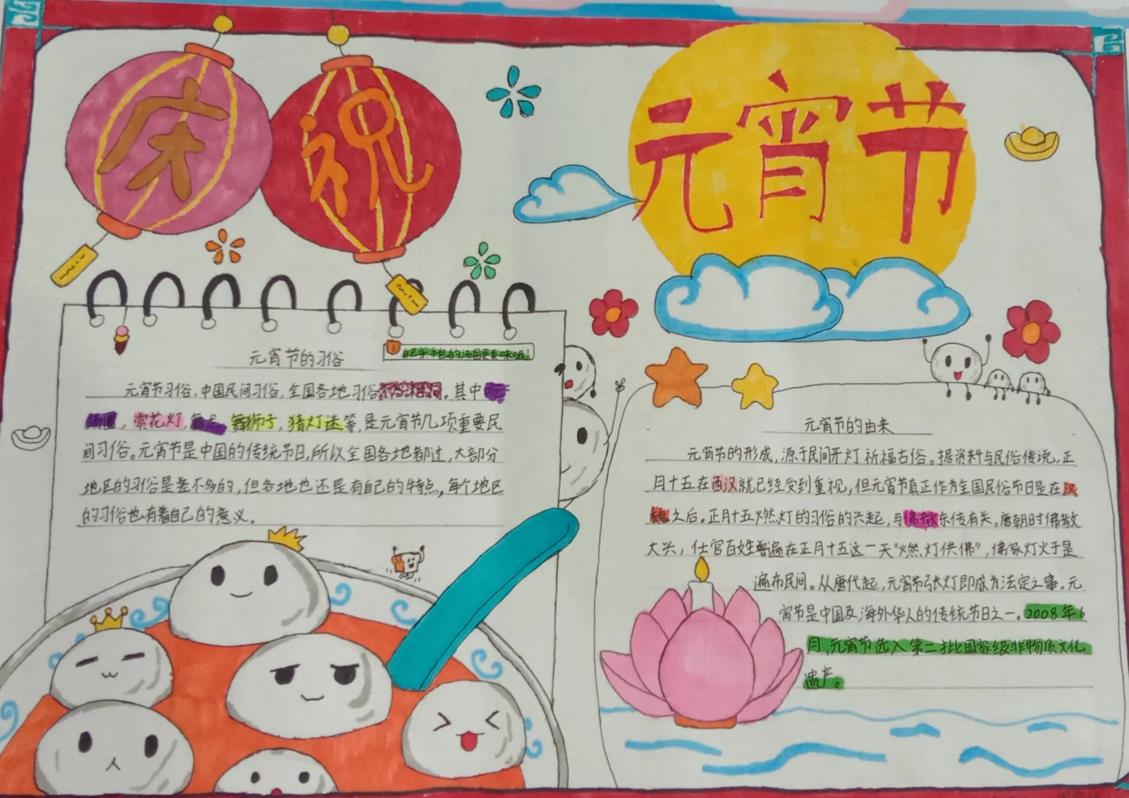 庆祝
元宵节
自己亲手包的汤圆更美味哦!
元宵节的习俗
元宵节习俗,中国民间习俗,全国各地习俗不尽相同。其中吃
汤圆,赏花灯,舞龙,舞狮子,猜灯迷等,是元宵节几项重要民
间习俗。元宵节是中国的传统节日,所以全国各地都过,大部分
地区的习俗是差不多的,但各地也还是有自己的特点,每个地区
的习俗也有着自己的意义。
元宵节的由来
元宵节的形成,源于民间开灯祈福古俗。据资料与民俗传说,正
月十五在西汉就已经受到重视,但元宵节真正作为全国民俗节日是在汉
魏之后。正月十五燃灯的习俗的兴起,与佛教东传有关,唐朝时佛教
大兴,仕官百姓普遍在正月十五这一天“燃灯供佛”,佛家灯火于是
遍布民间。从唐代起,元宵节张灯即成为法定之事。元
宵节是中国及海外华人的传统节日之一。2008年6
月,元宵节选入第二批国家级非物质文化
遗产。